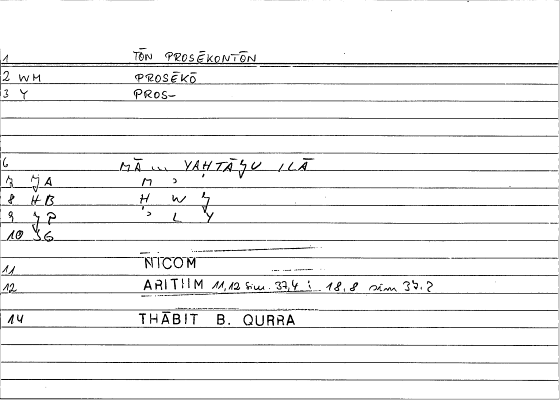 1 TŌN PROSĒKONTŌN
2 WM PROSĒKŌ
3 Y PROS-
6 MĀ ... YAḤTĀǦU ILĀ
7 ǦA M ʾ
8 HB Ḥ W Ǧ
9 ǦP ʾ L Y
10 SG
11 NICOM
12 ARITIIM 11,12 sim. 37,4 ; 18,8 sim 37.2
14 THĀBIT B. QURRA